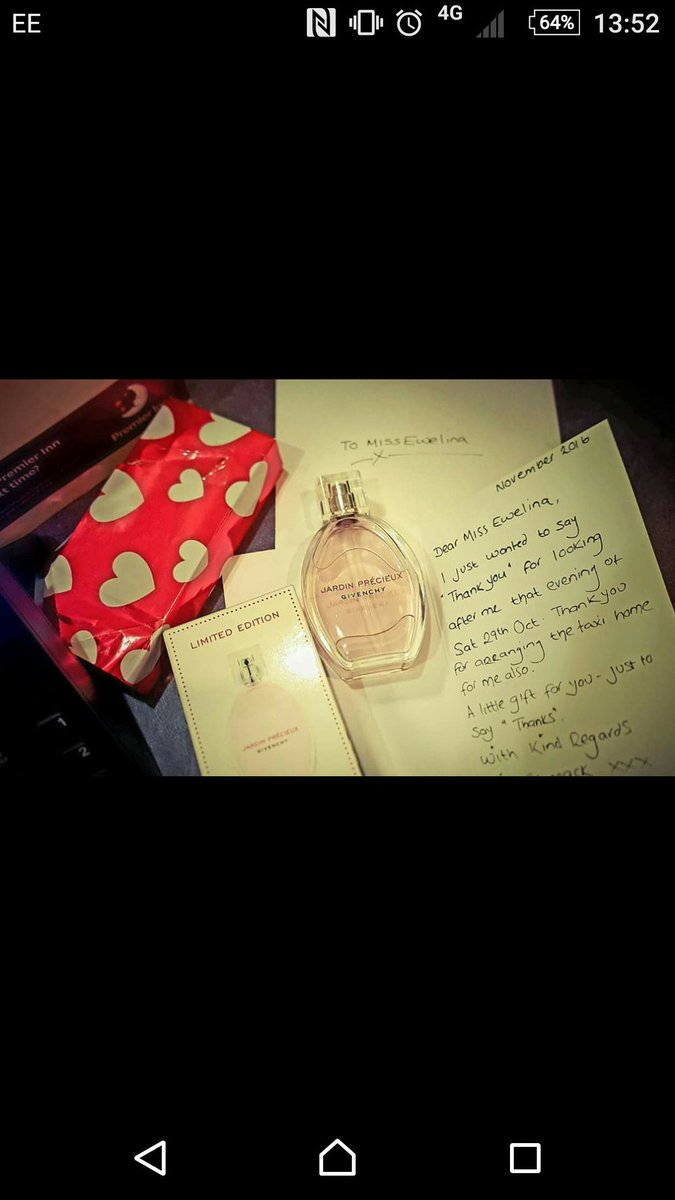 EE
4G
64%
13:52
Premier Inn
xt time?
Premier I
To Miss Ewelina
x
JARDIN PRÉCIEUX
GIVENCHY
LIMITED EDITION
JARDIN PRÉCIEUX
GIVENCHY
1
2
November 2016
Dear Miss Ewelina,
I just wanted to say
"Thankyou" for looking
after me that evening of
Sat 29th Oct. Thankyou
for arranging the taxi home
for me also.
A little gift for you - just to
say "Thanks".
With Kind Regards
xxx